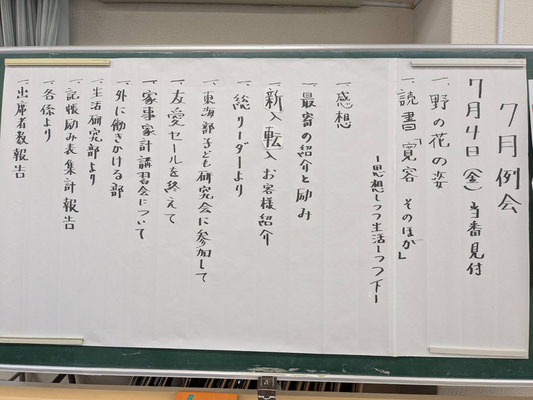 7月例会
7月4日(金)当番見付
一、野の花の姿
一、読書「寛容 そのほか」
ー思想しつつ生活しつつ下ー
一、感想
一、最寄の紹介と励み
一、新入転入お客様紹介
一、総リーダーより
一、東海部子ども研究会に参加して
一、友愛セールを終えて
一、家事家計講習会について
一、外に働きかける部
一、生活研究部より
一、記帳励み表集計報告
一、各係より
一、出席者数報告